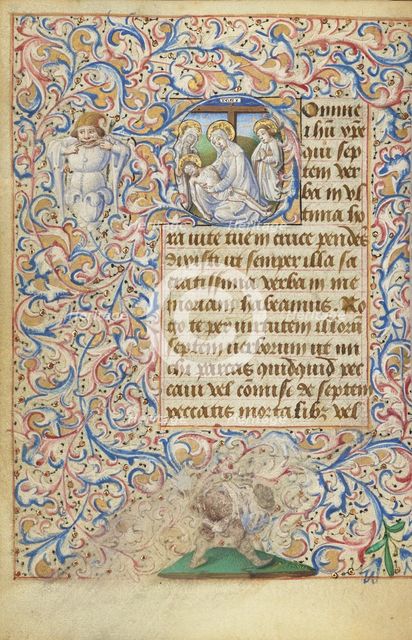 INRI
Domine
ihu xpe
qui sep
tem ver
ba in vl
tima ho
ra uite tue in cruce pendēs
dixisti ut semper illa sa
cratissima verba in me
moriam habeamus Ro
go te per uirtutem illorum
septem uerborum ut mi
chi parcas quidquid pec
caui vel comise de septem
peccatis mortalibz vel